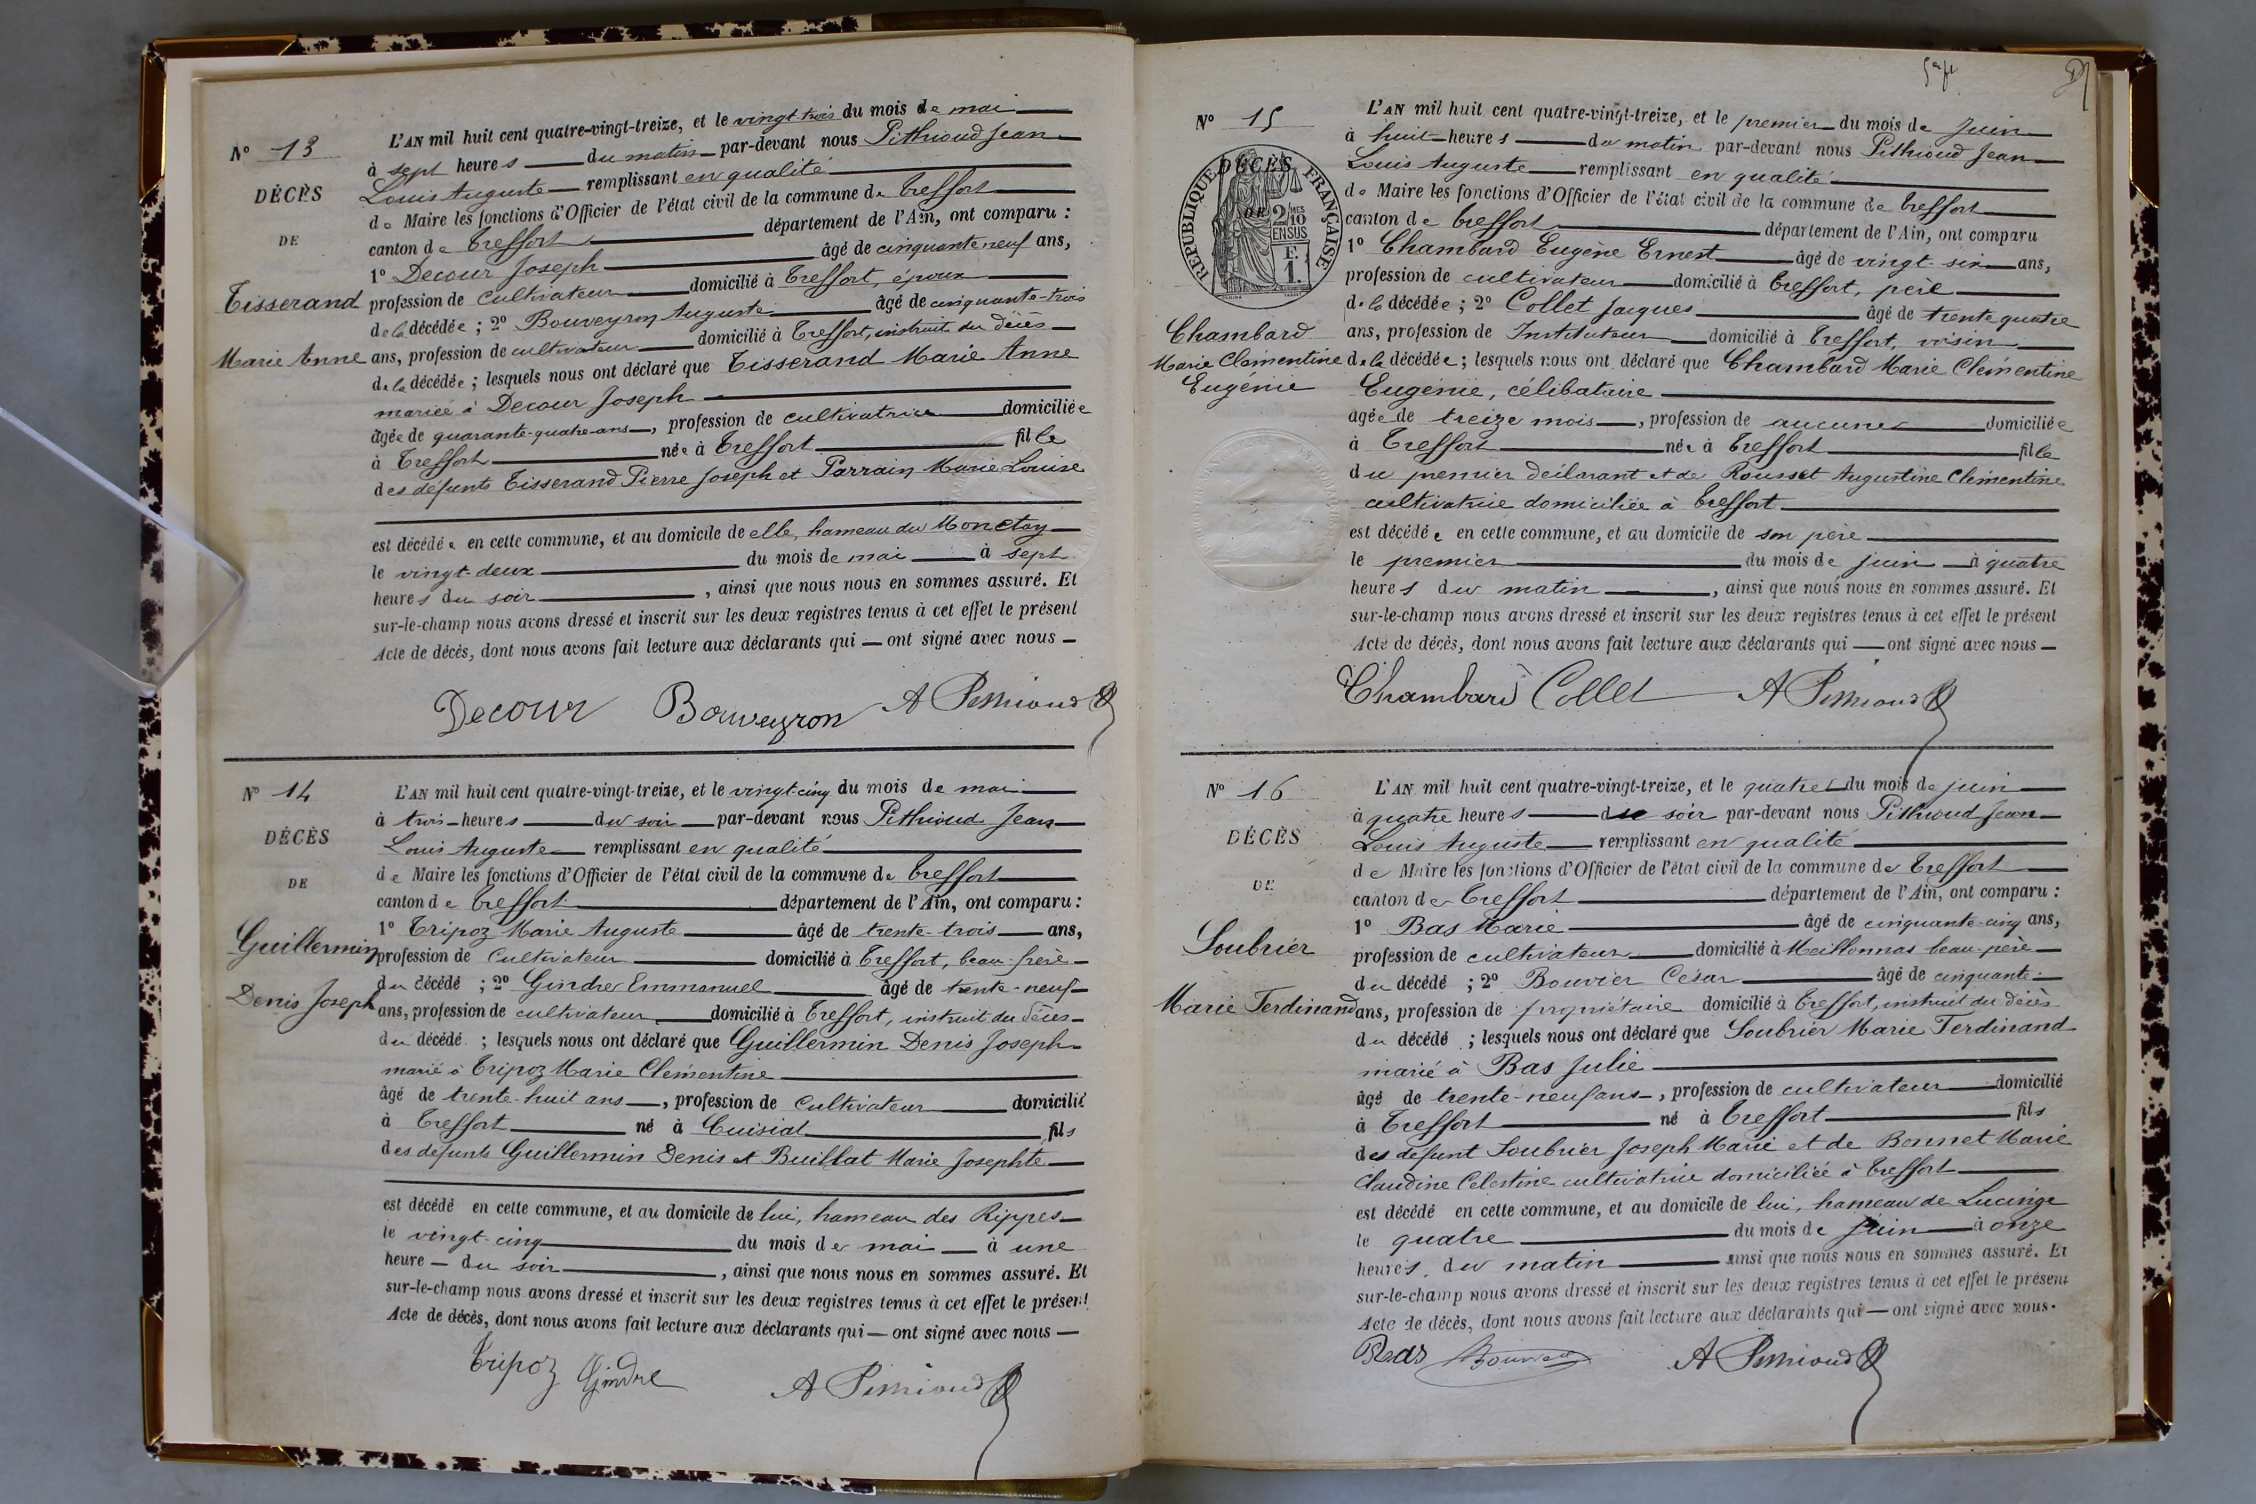 N° 13
DÉCÈS
DE
Tisserand
Marie Anne
L'AN mil huit cent quatre-vingt-treize, et le vingt-trois du mois de mai
à sept heures du matin par-devant nous Pithioud Jean
Louis Auguste remplissant en qualité
de Maire les fonctions d'Officier de l'état civil de la commune de Treffort
canton de Treffort département de l'Ain, ont comparu :
1° Decour Joseph âgé de cinquante neuf ans,
profession de cultivateur domicilié à Treffort, époux
de la décédée ; 2° Bouveyron Auguste âgé de cinquante-trois
ans, profession de cultivateur domicilié à Treffort, instruit du décès
de la décédée ; lesquels nous ont déclaré que Tisserand Marie Anne
mariée à Decour Joseph
âgée de quarante-quatre-ans, profession de cultivatrice domiciliée
à Treffort née à Treffort fille
des défunts Tisserand Pierre Joseph et Parrain Marie Louise
est décédée en cette commune, et au domicile de elle, hameau du Monctay
le vingt-deux du mois de mai à sept
heures du soir, ainsi que nous nous en sommes assuré. Et
sur-le-champ nous avons dressé et inscrit sur les deux registres tenus à cet effet le présent
Acte de décès, dont nous avons fait lecture aux déclarants qui — ont signé avec nous —
Decour Bouveyron A Pithioud
N° 14
DÉCÈS
DE
Guillermin
Denis Joseph
L'AN mil huit cent quatre-vingt-treize, et le vingt-cinq du mois de mai
à trois heures du soir par-devant nous Pithioud Jean
Louis Auguste remplissant en qualité
de Maire les fonctions d'Officier de l'état civil de la commune de Treffort
canton de Treffort département de l'Ain, ont comparu :
1° Tripoz Marie Auguste âgé de trente-trois ans,
profession de cultivateur domicilié à Treffort, beau-frère
du décédé ; 2° Gindre Emmanuel âgé de trente-neuf
ans, profession de cultivateur domicilié à Treffort, instruit du décès
du décédé ; lesquels nous ont déclaré que Guillermin Denis Joseph
marié à Tripoz Marie Clementine
âgé de trente-huit ans, profession de cultivateur domicilié
à Treffort né à Cuisiat fils
des défunts Guillermin Denis et Buillat Marie Josephte
est décédé en cette commune, et au domicile de lui, hameau des Rippes
le vingt-cinq du mois de mai à une
heure — du soir, ainsi que nous nous en sommes assuré. Et
sur-le-champ nous avons dressé et inscrit sur les deux registres tenus à cet effet le présent
Acte de décès, dont nous avons fait lecture aux déclarants qui — ont signé avec nous —
Tripoz Gindre A Pithioud
N° 15
DÉCÈS
RÉPUBLIQUE FRANÇAISE
DE
2/10 MES
EN SUS
F.
1.
Chambard
Marie Clementine
Eugénie
L'AN mil huit cent quatre-vingt-treize, et le premier du mois de juin
à huit heures du matin par-devant nous Pithioud Jean
Louis Auguste remplissant en qualité
de Maire les fonctions d'Officier de l'état civil de la commune de Treffort
canton de Treffort département de l'Ain, ont comparu
1° Chambard Eugène Ernest âgé de vingt-six ans,
profession de cultivateur domicilié à Treffort, père
de la décédée ; 2° Collet Jacques âgé de trente quatre
ans, profession de Instituteur domicilié à Treffort, voisin
de la décédée ; lesquels nous ont déclaré que Chambard Marie Clémentine
Eugénie, célibataire
âgée de treize mois, profession de aucune domiciliée
à Treffort née à Treffort fille
du premier déclarant et de Rousset Augustine Clémentine
cultivatrice domiciliée à Treffort
est décédée en cette commune, et au domicile de son père
le premier du mois de juin à quatre
heures du matin, ainsi que nous nous en sommes assuré. Et
sur-le-champ nous avons dressé et inscrit sur les deux registres tenus à cet effet le présent
Acte de décès, dont nous avons fait lecture aux déclarants qui — ont signé avec nous —
Chambard Collet A Pithioud
N° 16
DÉCÈS
DE
Soubrier
Marie Ferdinand
L'AN mil huit cent quatre-vingt-treize, et le quatre du mois de juin
à quatre heures du soir par-devant nous Pithioud Jean
Louis Auguste remplissant en qualité
de Maire les fonctions d'Officier de l'état civil de la commune de Treffort
canton de Treffort département de l'Ain, ont comparu :
1° Bas Marie âgé de cinquante-cinq ans,
profession de cultivateur domicilié à Meillonnas beau-père
du décédé ; 2° Bouvier César âgé de cinquante
ans, profession de propriétaire domicilié à Treffort, instruit du décès
du décédé ; lesquels nous ont déclaré que Soubrier Marie Ferdinand
marié à Bas Julie
âgé de trente-neuf ans, profession de cultivateur domicilié
à Treffort né à Treffort fils
des défunt Soubrier Joseph Marie et de Bonnet Marie
Claudine Celestine cultivatrice domiciliée à Treffort
est décédé en cette commune, et au domicile de lui, hameau de Lucinge
le quatre du mois de juin à onze
heures du matin ainsi que nous nous en sommes assuré. Et
sur-le-champ nous avons dressé et inscrit sur les deux registres tenus à cet effet le présent
Acte de décès, dont nous avons fait lecture aux déclarants qui — ont signé avec nous.
Bas Bouvier A Pithioud